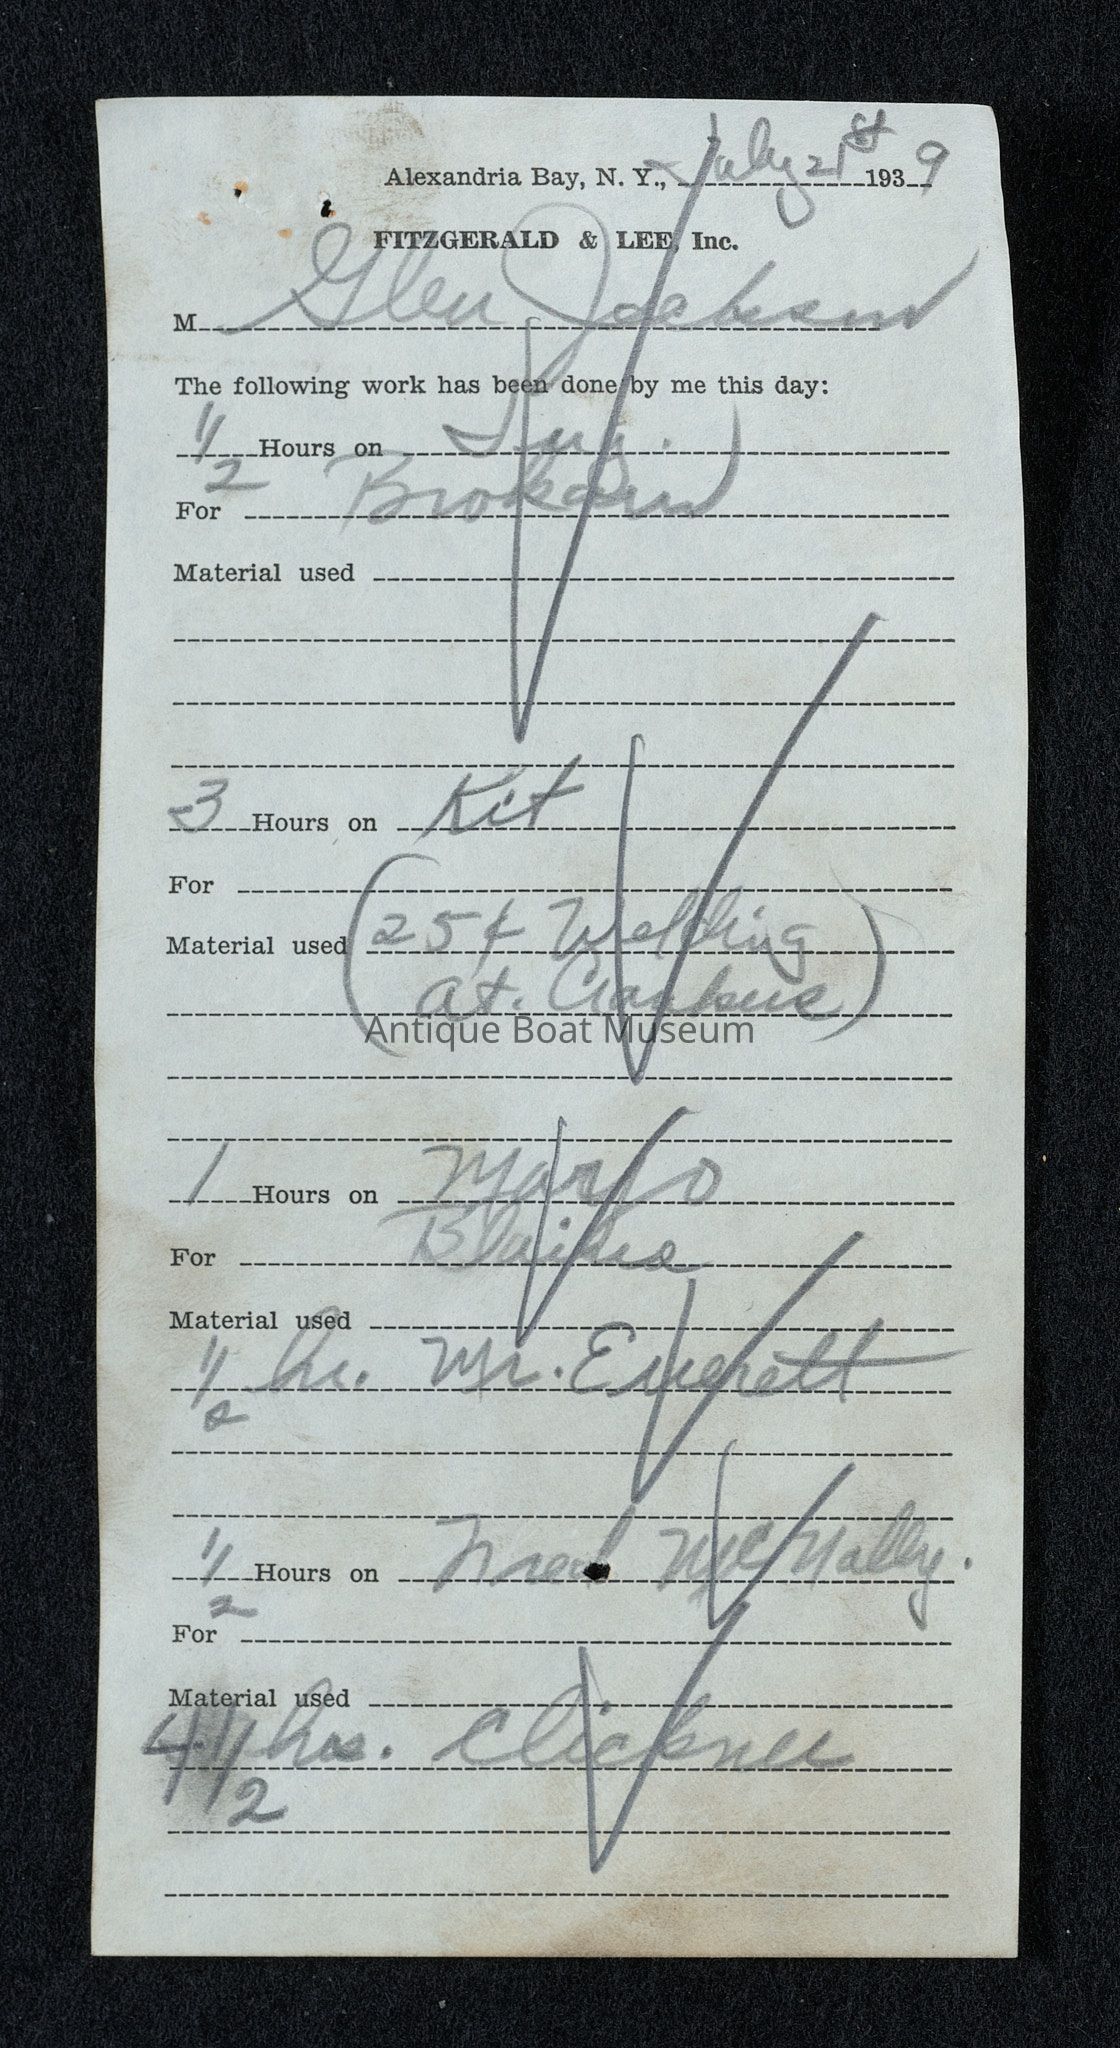 Alexandria Bay, N. Y., July 21st 1939
FITZGERALD & LEE, Inc.
M Glen Jackson
The following work has been done by me this day:
1/2 Hours on
For Brokaw
Material used
3 Hours on Kit
For
Material used (25¢ Welding
at.
Antique Boat Museum
1 Hours on Marjo
For Blaine
Material used
1/2 hr. Mr. Everett
1/2 Hours on Fred McNally.
For
Material used
4 1/2 hrs. Clickner